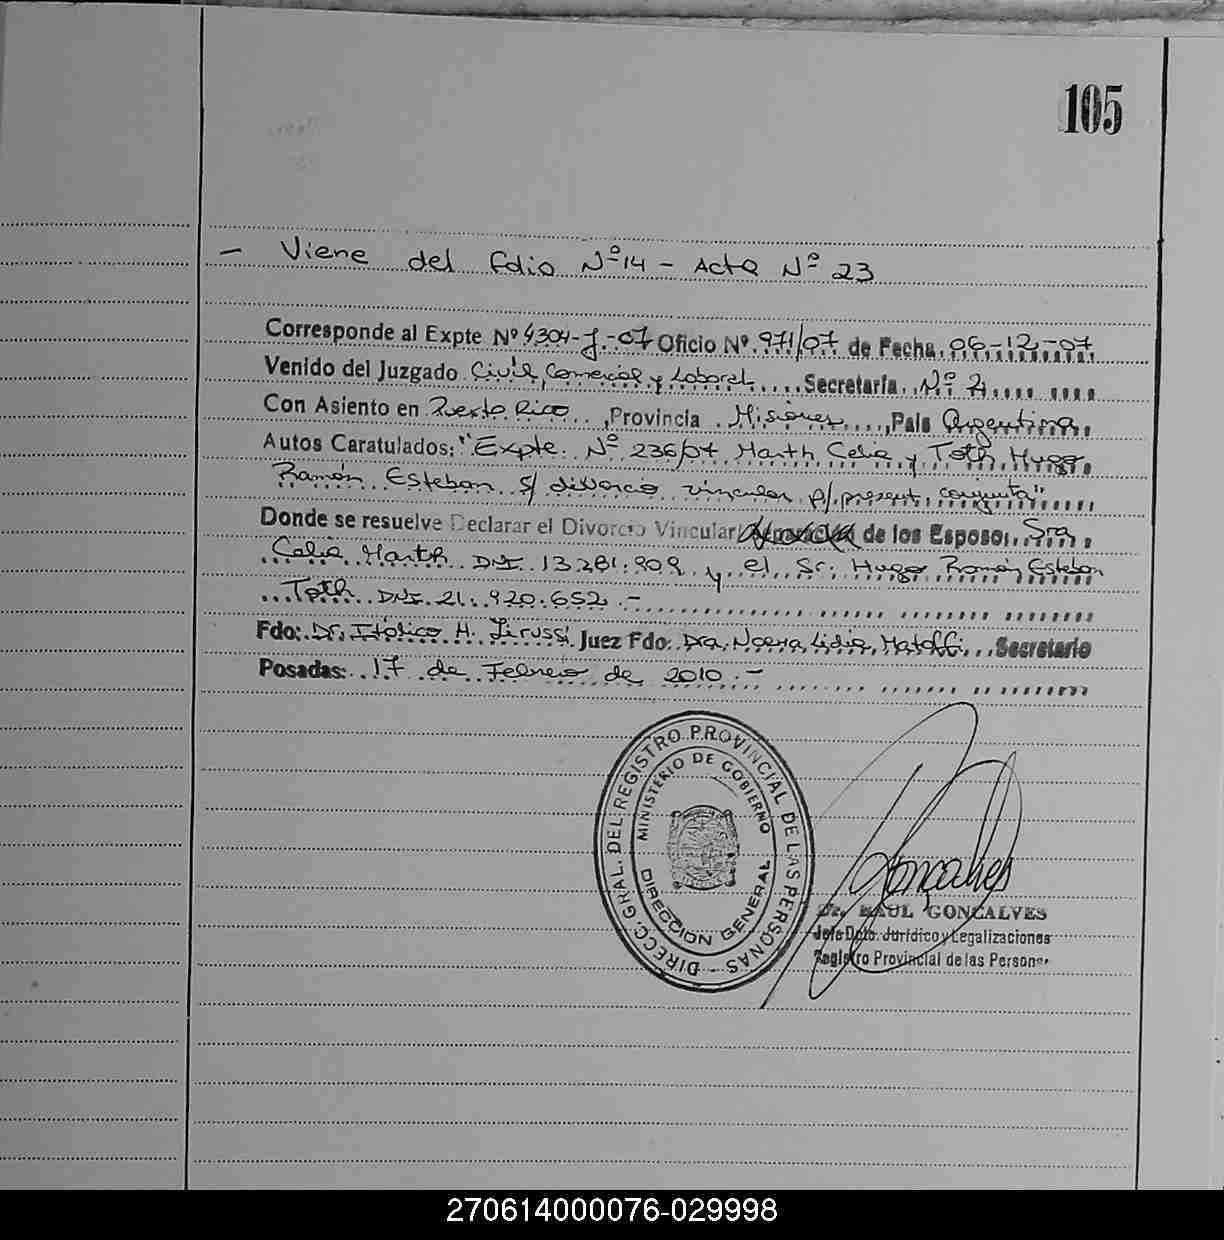 105
- Viene del folio Nº 14 - Acta Nº 23
Corresponde al Expte Nº 4304-J.-07 Oficio Nº. 971/07 de Fecha. 06-12-07
Venido del Juzgado Civil, Comercial y Laboral..... Secretaría.. Nº 2.....
Con Asiento en Puerto Rico...,Provincia . Misiones...., País Argentina.
Autos Caratulados: "Expte. Nº 236/07 Marth Celia y Toth Hugo
Ramón Esteban s/ divorcio vincular p/present. conjunta"
Donde se resuelve Declarar el Divorcio Vincular/ de los Esposos.. Sra.
Celia Marth DNI 13.281.909 y el Sr. Hugo Ramón Esteban
Toth DNI. 21.920.652.-
Fdo: Dr. H. Juez Fdo: Dra. Norma Lidia, Secretario
Posadas: 17 de Febrero de 2010.-
DIRECC. GRAL. DEL REGISTRO PROVINCIAL DE LAS PERSONAS -
MINISTERIO DE GOBIERNO
DIRECCION GENERAL
Goncalves
Dr. RAUL GONCALVES
Jefe Dpto. Jurídico y Legalizaciones
Registro Provincial de las Personas
270614000076-029998